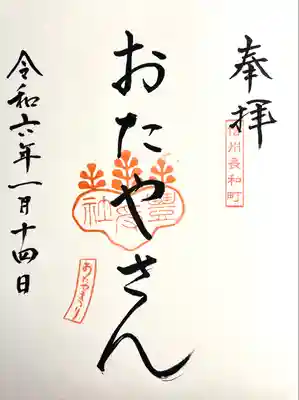 奉拝
信州長和町
おたやさん
豐受社
おたやまつり
令和六年一月十四日